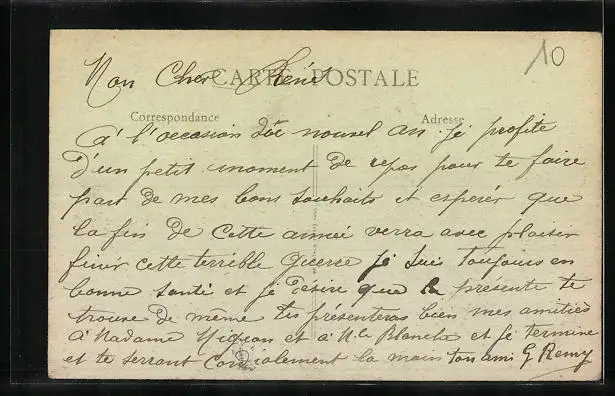 10
Mon Cher René
CARTE POSTALE
Correspondance
Adresse
A l'occasion du nouvel an je profite
d'un petit moment de repos pour te faire
part de mes bons souhaits et esperér que
la fin de cette année verra avec plaisir
finir cette terrible Guerre je suis toujours en
bonne santé et je désire que la présente te
trouve de même tu présenteras bien mes amitiés
à Madame Mignon et à Mlle Blanche et je termine
et te serrant Cordialement la main ton ami G Remy